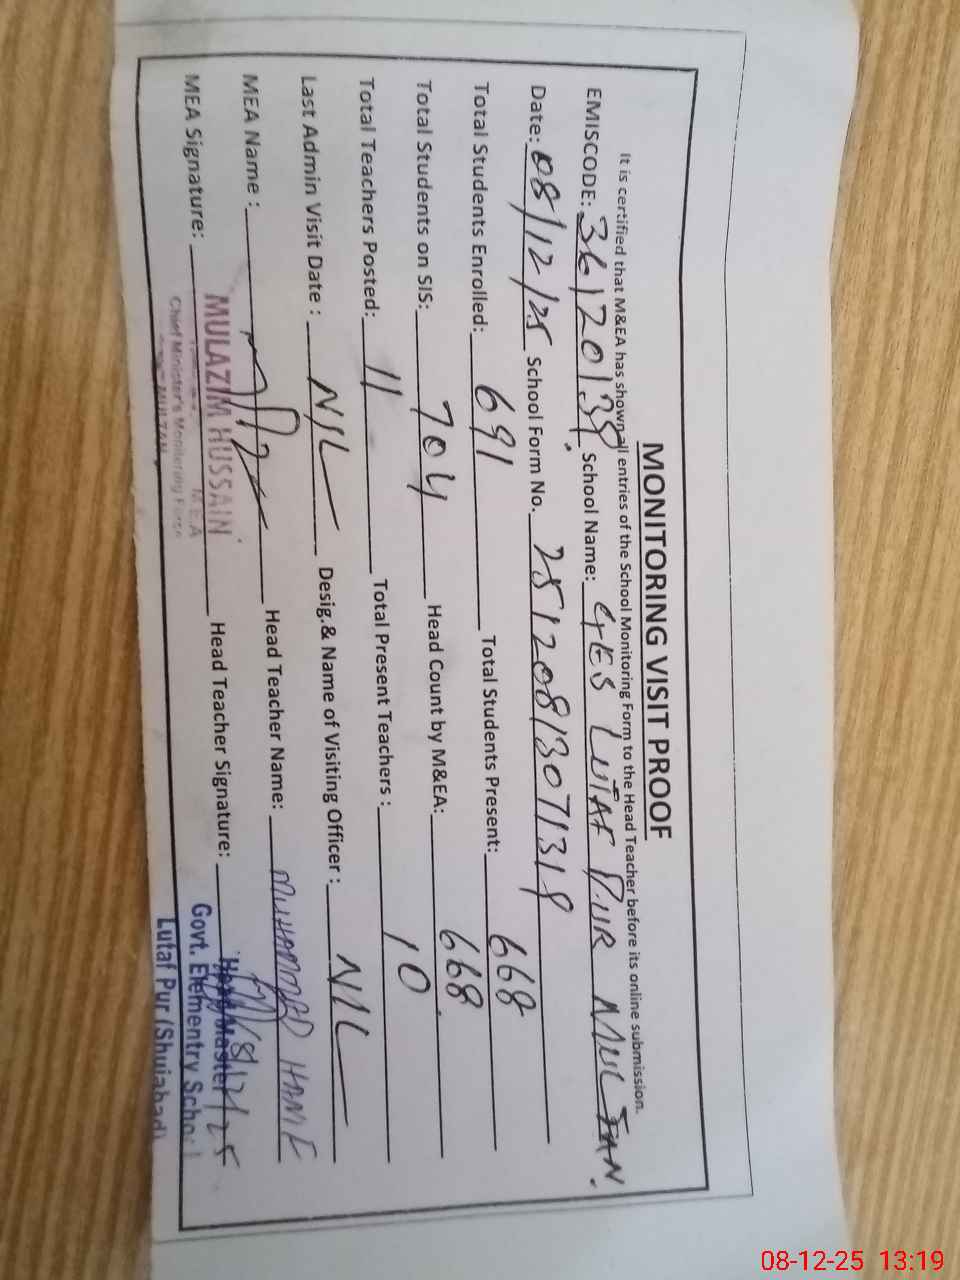 MONITORING VISIT PROOF
It is certified that M&EA has shown all entries of the School Monitoring Form to the Head Teacher before its online submission.
EMISCODE: 36120138 School Name: GES LUTAF PUR MULTAN.
Date: 08/12/25 School Form No. 25120813071319
Total Students Enrolled: 691 Total Students Present: 668
Total Students on SIS: 704 Head Count by M&EA: 668
Total Teachers Posted: 11 Total Present Teachers : 10
Last Admin Visit Date : NIL Desig.& Name of Visiting Officer : NIL
MEA Name : Head Teacher Name: MUHAMMAD
MEA Signature: Head Teacher Signature: 8/12/25
MULAZIM HUSSAIN
M.E.A
Chief Minister's Monitoring Force
MULTAN
Head Master
Govt. Elementry School
Lutaf Pur (Shujabad)
08-12-25 13:19